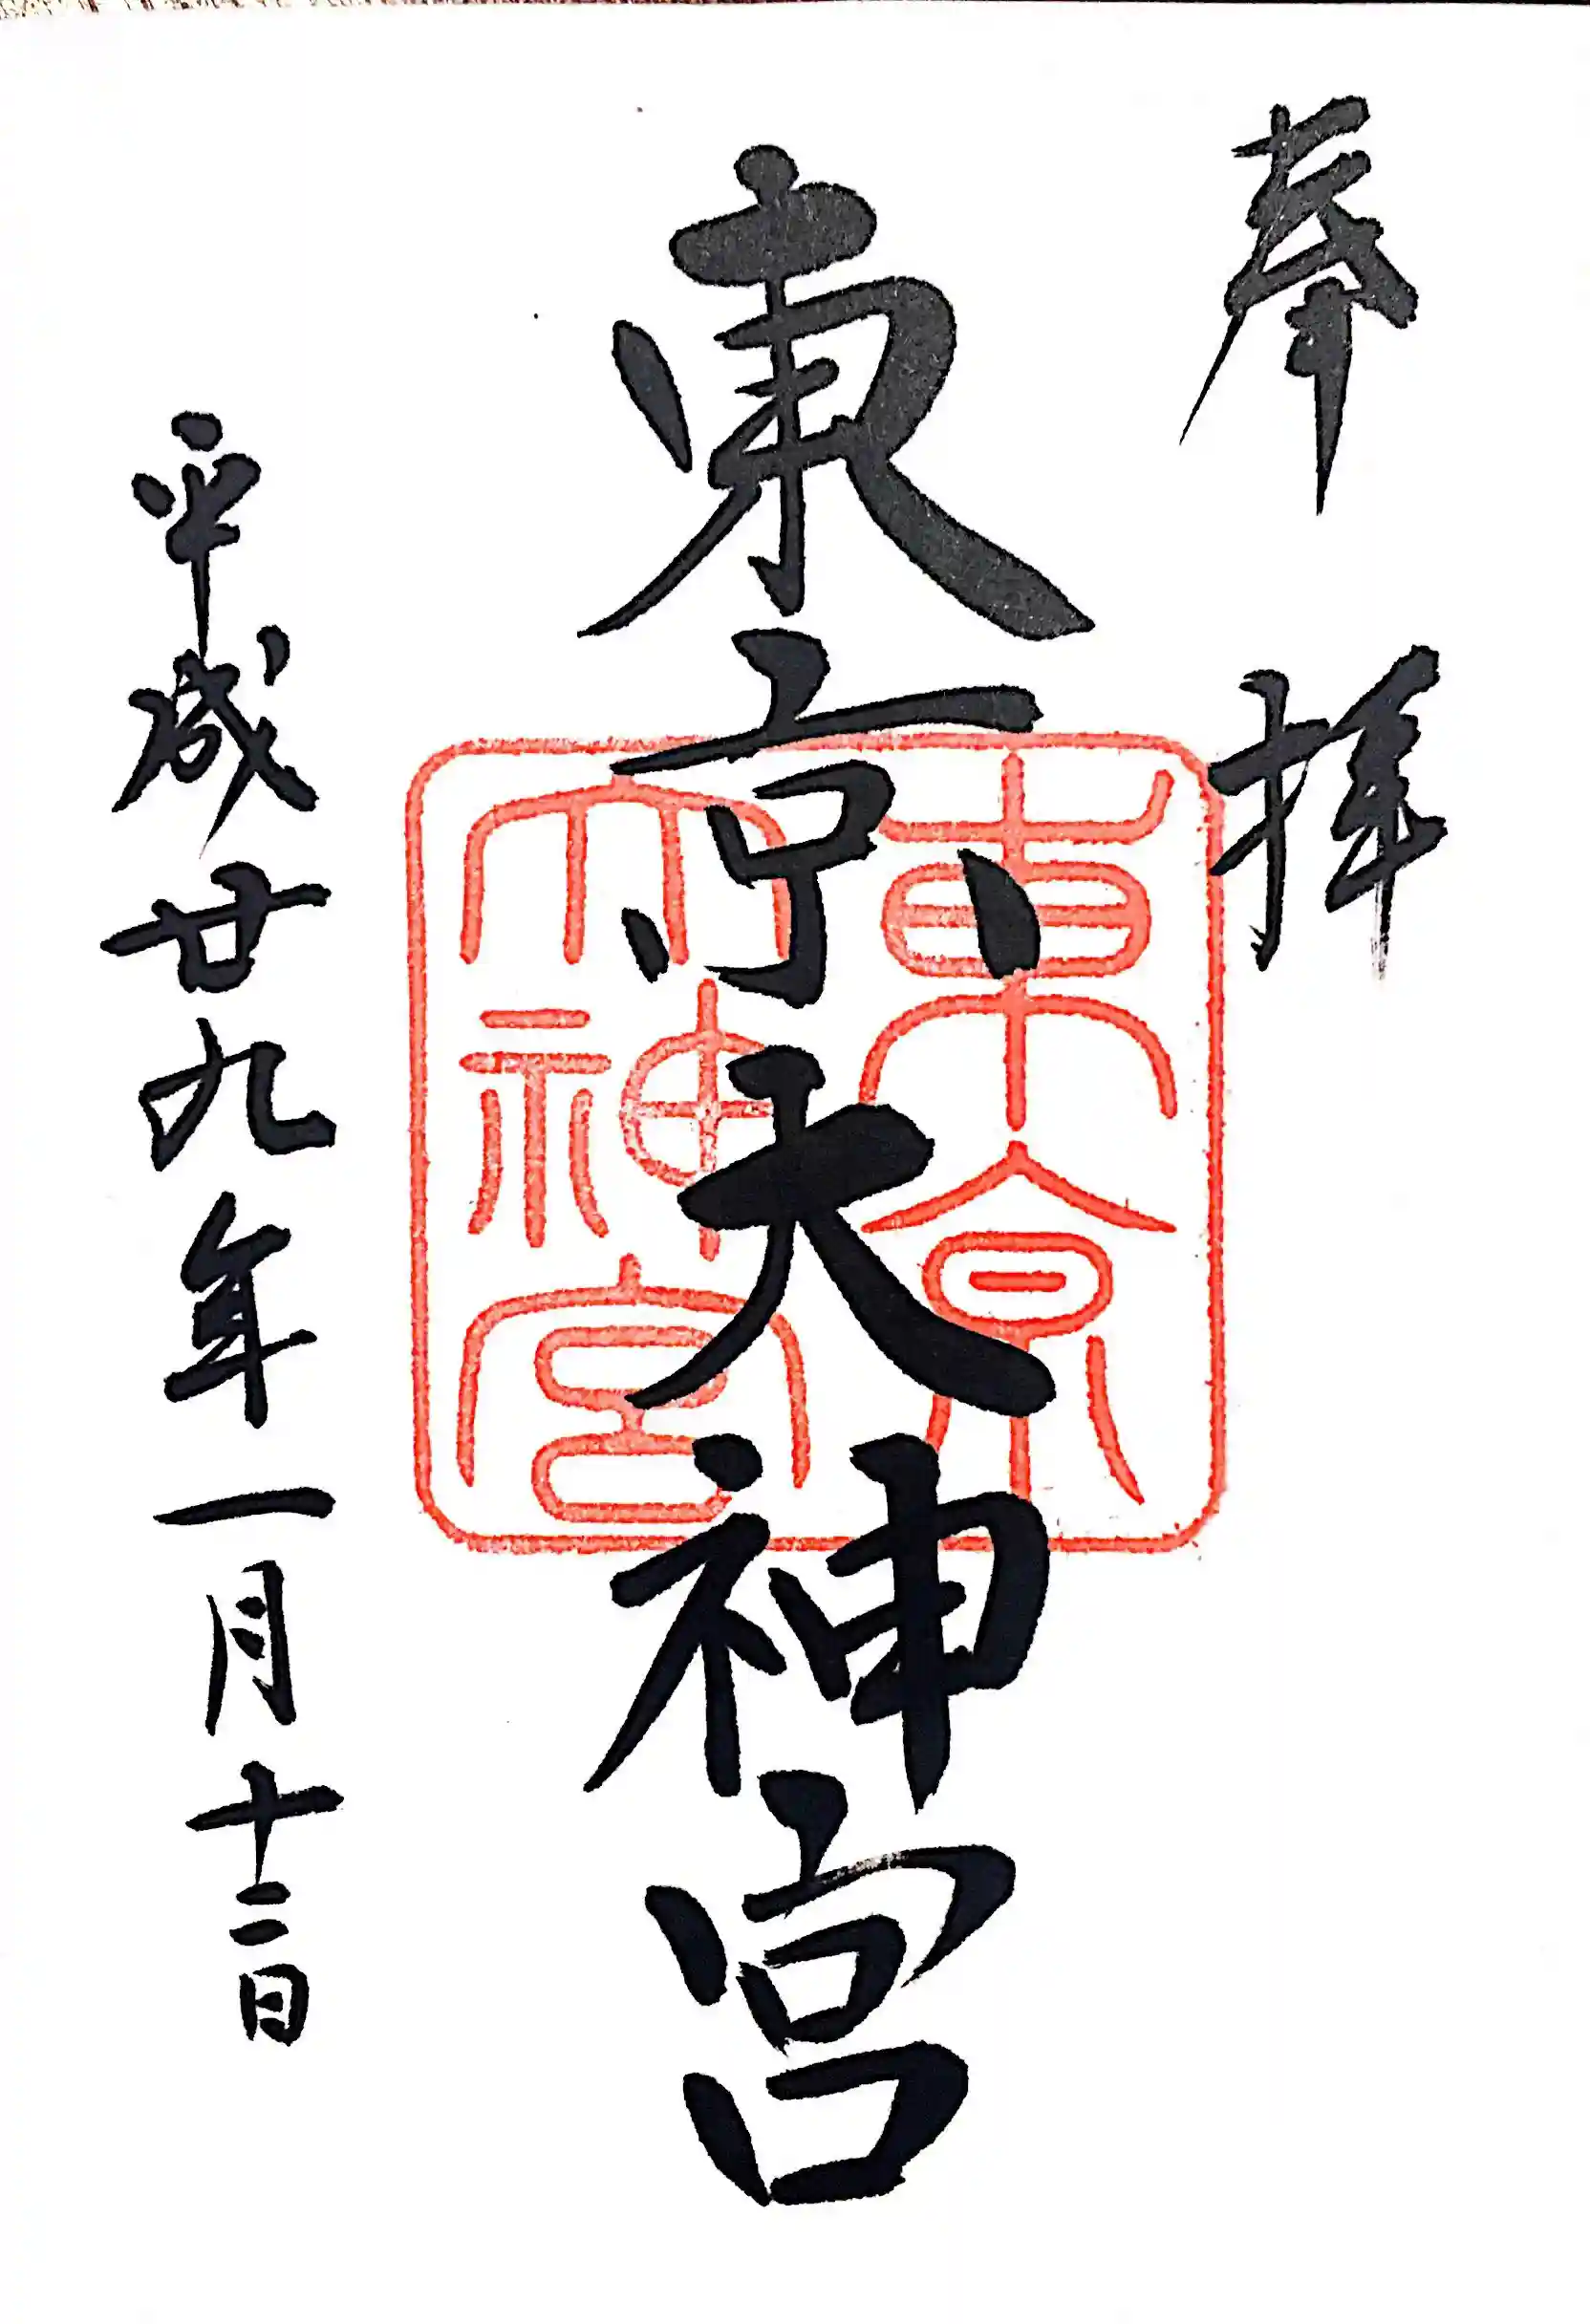 奉拝
東京大神宮
東京
大神宮
平成廿九年一月十二日